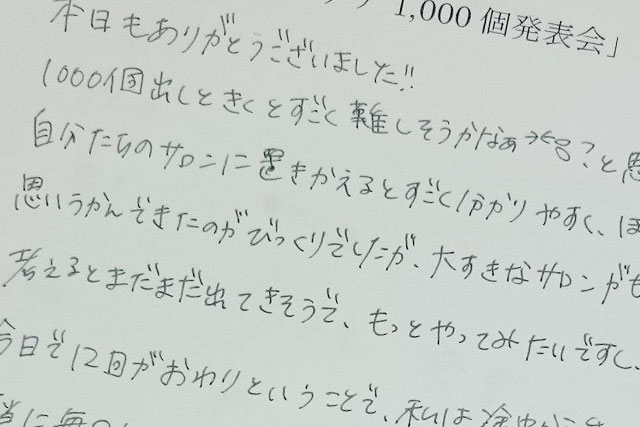 1,000個発表会」
本日もありがとうございました!!
1000個出しときくとすごく難しそうかなぁ
?と思
自分たちのサロンに置きかえるとすごく分かりやすく、ほ
思いうかんできたのがびっくりでしたが、大すきなサロンがも
考えるとまだまだ出てきそうで、もっとやってみたいですし、
今日で12回がおわりということで、私は途中から